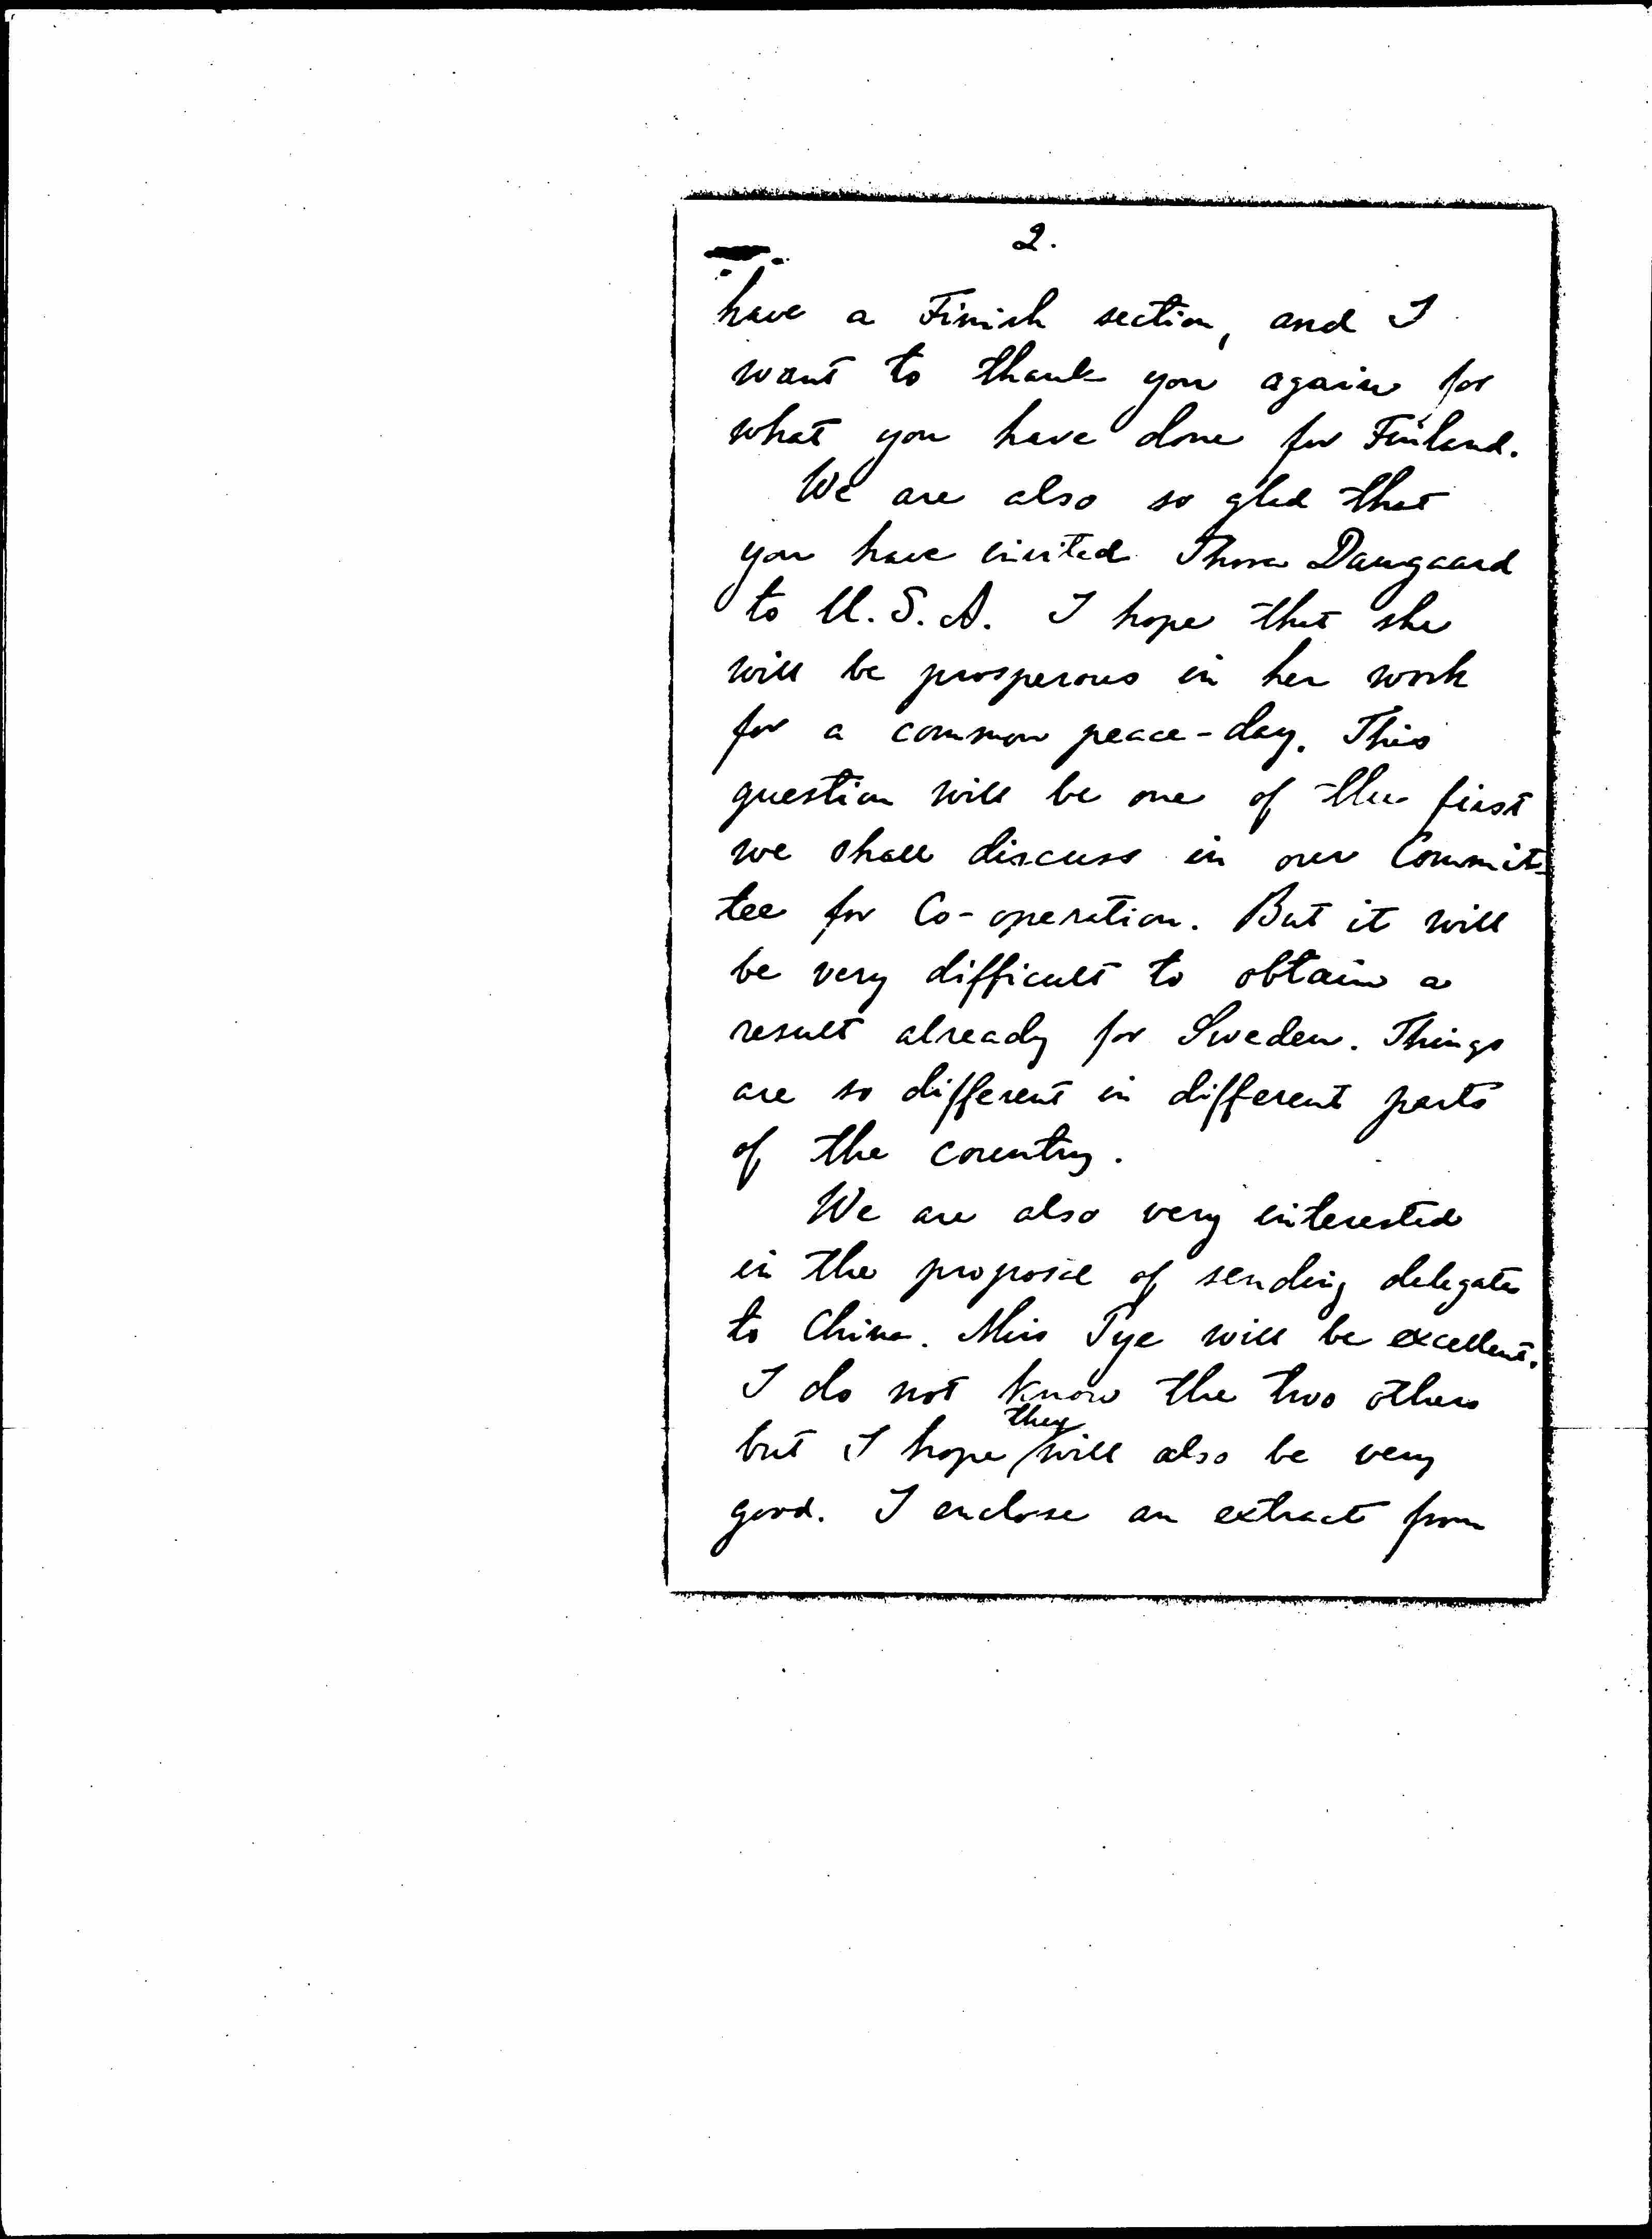 2.
have a Finish section, and I
want to thank you again for
what you have done for Finland.
We are also so glad that
you have invited Thora Daugaard
to U.S.A. I hope that she
will be prosperous in her work
for a common peace-day. This
question will be one of the first
we shall discuss in our Commit-
tee for Co-operation. But it will
be very difficult to obtain a
result already for Sweden. Things
are so different in different parts
of the country.
We are also very interested
in the proposal of sending delegates
to China. Miss Pye will be excellent.
I do not know the two others
but I hope they will also be very
good. I enclose an extract from